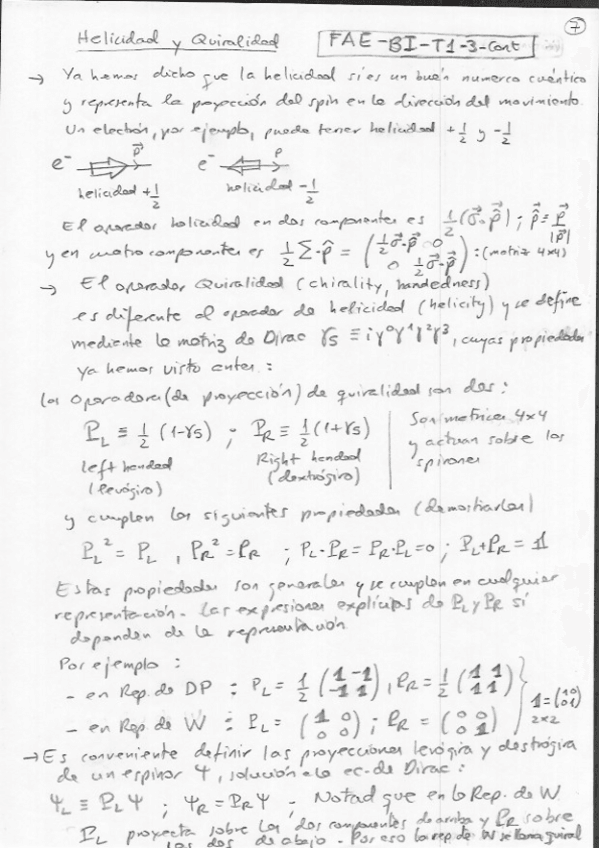 7
Helicidad y Quiralidad FAE-BI-T1-3-Cont
→ Ya hemos dicho que la helicidad sí es un buen numero cuántico
y representa la proyección del spin en la dirección del movimiento.
Un electrón, por ejemplo, puede tener helicidad +1/2 y -1/2
e⁻ p⃗ e⁻ p
helicidad +1/2 helicidad -1/2
El operador helicidad en dos componentes es 1/2 (σ⃗·p̂) ; p̂ = p⃗/|p⃗|
y en cuatro componentes es 1/2 Σ·p̂ = (1/2 σ⃗·p̂ 0 0 1/2 σ⃗·p̂) : (matriz 4x4)
→ El operador Quiralidad (chirality, handedness)
es diferente al operador de helicidad (helicity) y se define
mediente la matriz de Dirac γ5 ≡ iγ⁰γ¹γ²γ³, cuyas propiedades
ya hemos visto antes :
Los Operadores (de proyección) de quiralidad son dos :
P_L ≡ 1/2 (1-γ5) ; P_R ≡ 1/2 (1+γ5)
Left handed (levógiro) Right handed (dextrógiro)
Son matrices 4x4
y actuan sobre los
spinores
y cumplen las siguientes propiedades (demostrarlas)
P_L² = P_L , P_R² = P_R ; P_L·P_R = P_R·P_L = 0 ; P_L+P_R = 1
Estas propiedades son generales y se cumplen en cualquier
representación. Las expresiones explícitas de P_L y P_R sí
dependen de la representación
Por ejemplo :
- en Rep. de DP : P_L = 1/2 (1 -1 -1 1) , P_R = 1/2 (1 1 1 1)
- en Rep. de W : P_L = (1 0 0 0) ; P_R = (0 0 0 1)
1 = (1 0 0 1)
2x2
→ Es conveniente definir las proyecciones levógira y destrógira
de un espinor Ψ, solución a la ec. de Dirac :
Ψ_L ≡ P_L Ψ ; Ψ_R = P_R Ψ . Notad que en la Rep. de W
P_L proyecta sobre las dos componentes de arriba y P_R sobre
las dos de abajo. Por eso la rep. de W se llama quiral